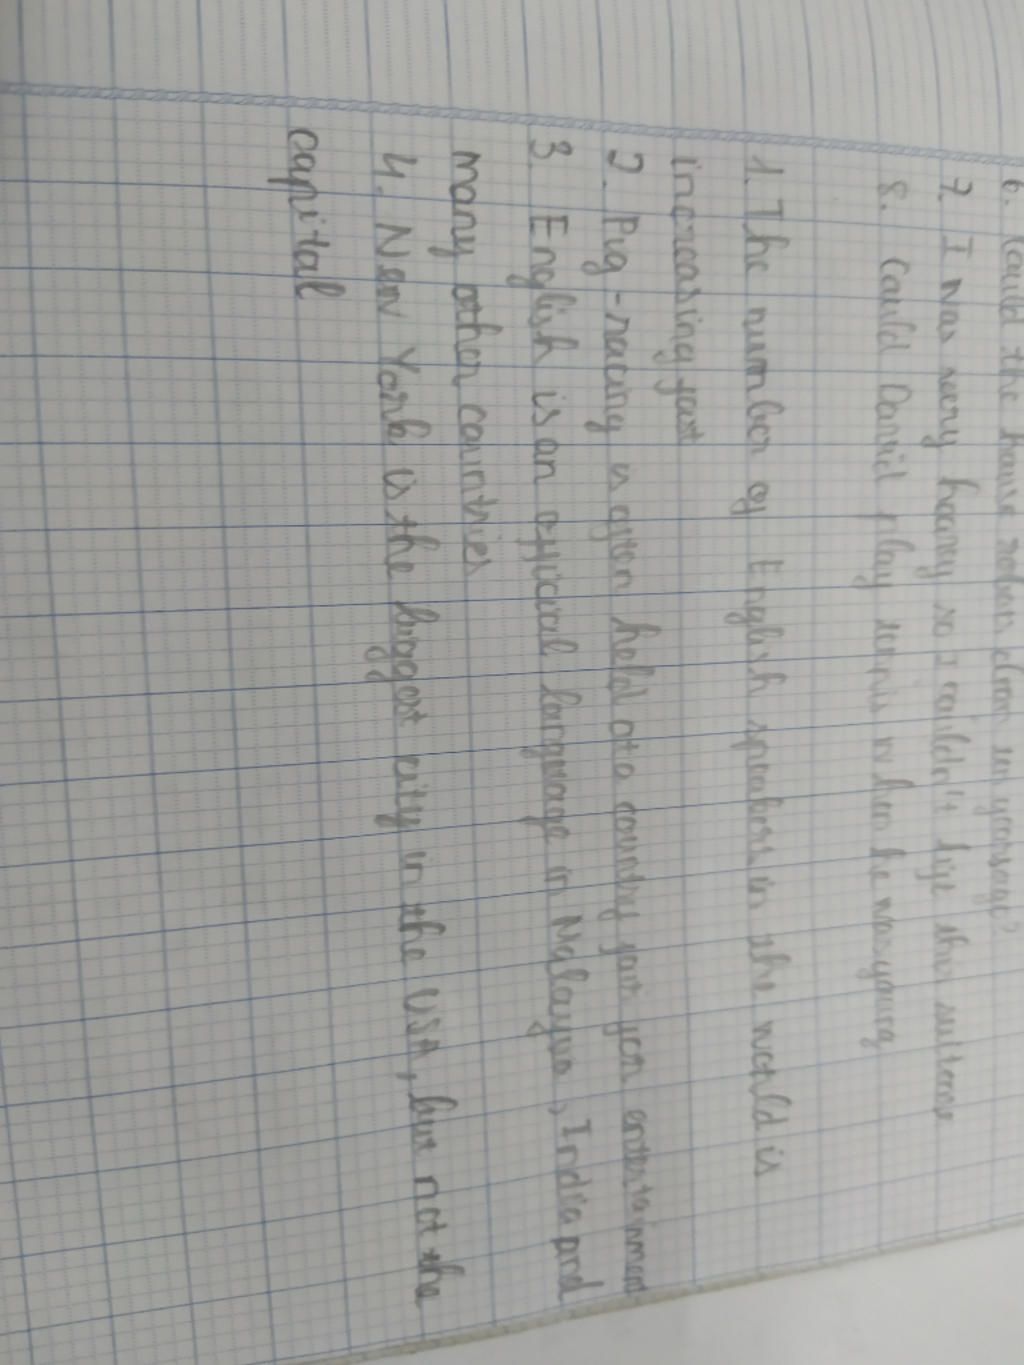 6. Could the house robon clean in yoursage?
7. I was very heavy so I couldn't lije the suitcase
8. Could David play tennis when he was young
1. The number of English speakers in the world is
increasing yast
2. Pig-racing is often held at a country yair yor entertainment
3. English is an official language in Malaysia, India and
many other countries
4. New York is the biggest city in the USA, but not the
capital